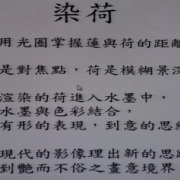 染荷
用光圈掌握蓮與荷的距離
是對焦點，荷是模糊景深
渲染的荷進入水墨中，
水墨與色彩結合，
有形的表現，到意的思維
現代的影像理出新的思路
到艷而不俗之畫意境界